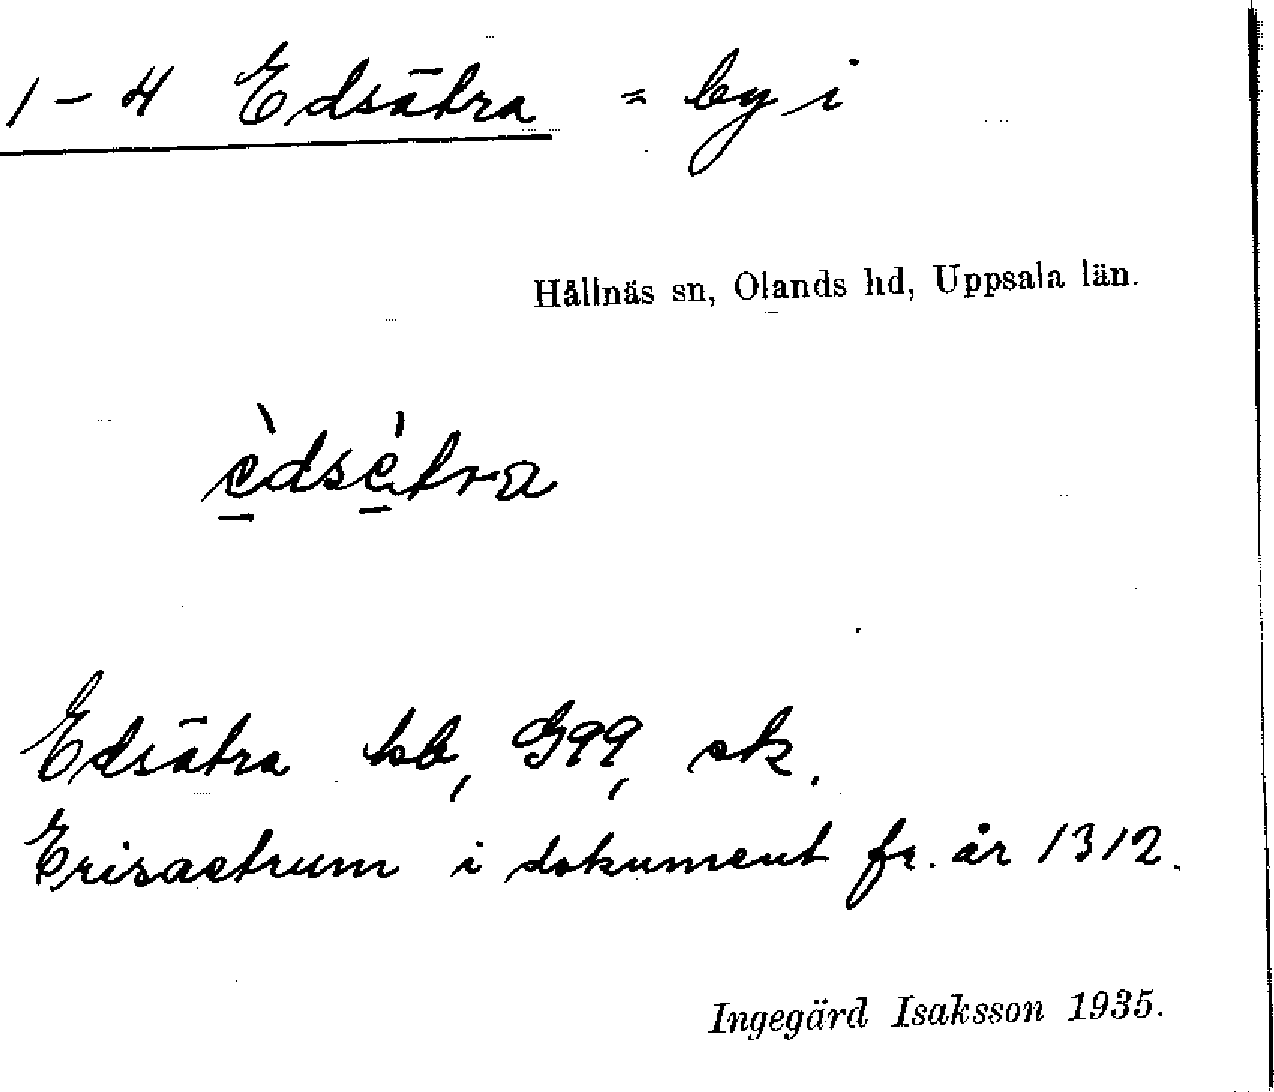 1-4 Edsätra = by i
Hållnäs sn, Olands hd, Uppsala län.
èdsétra
Edsätra kb, G99, sk.
Erisaetrum i dokument fr. år 1312.
Ingegärd Isaksson 1935.